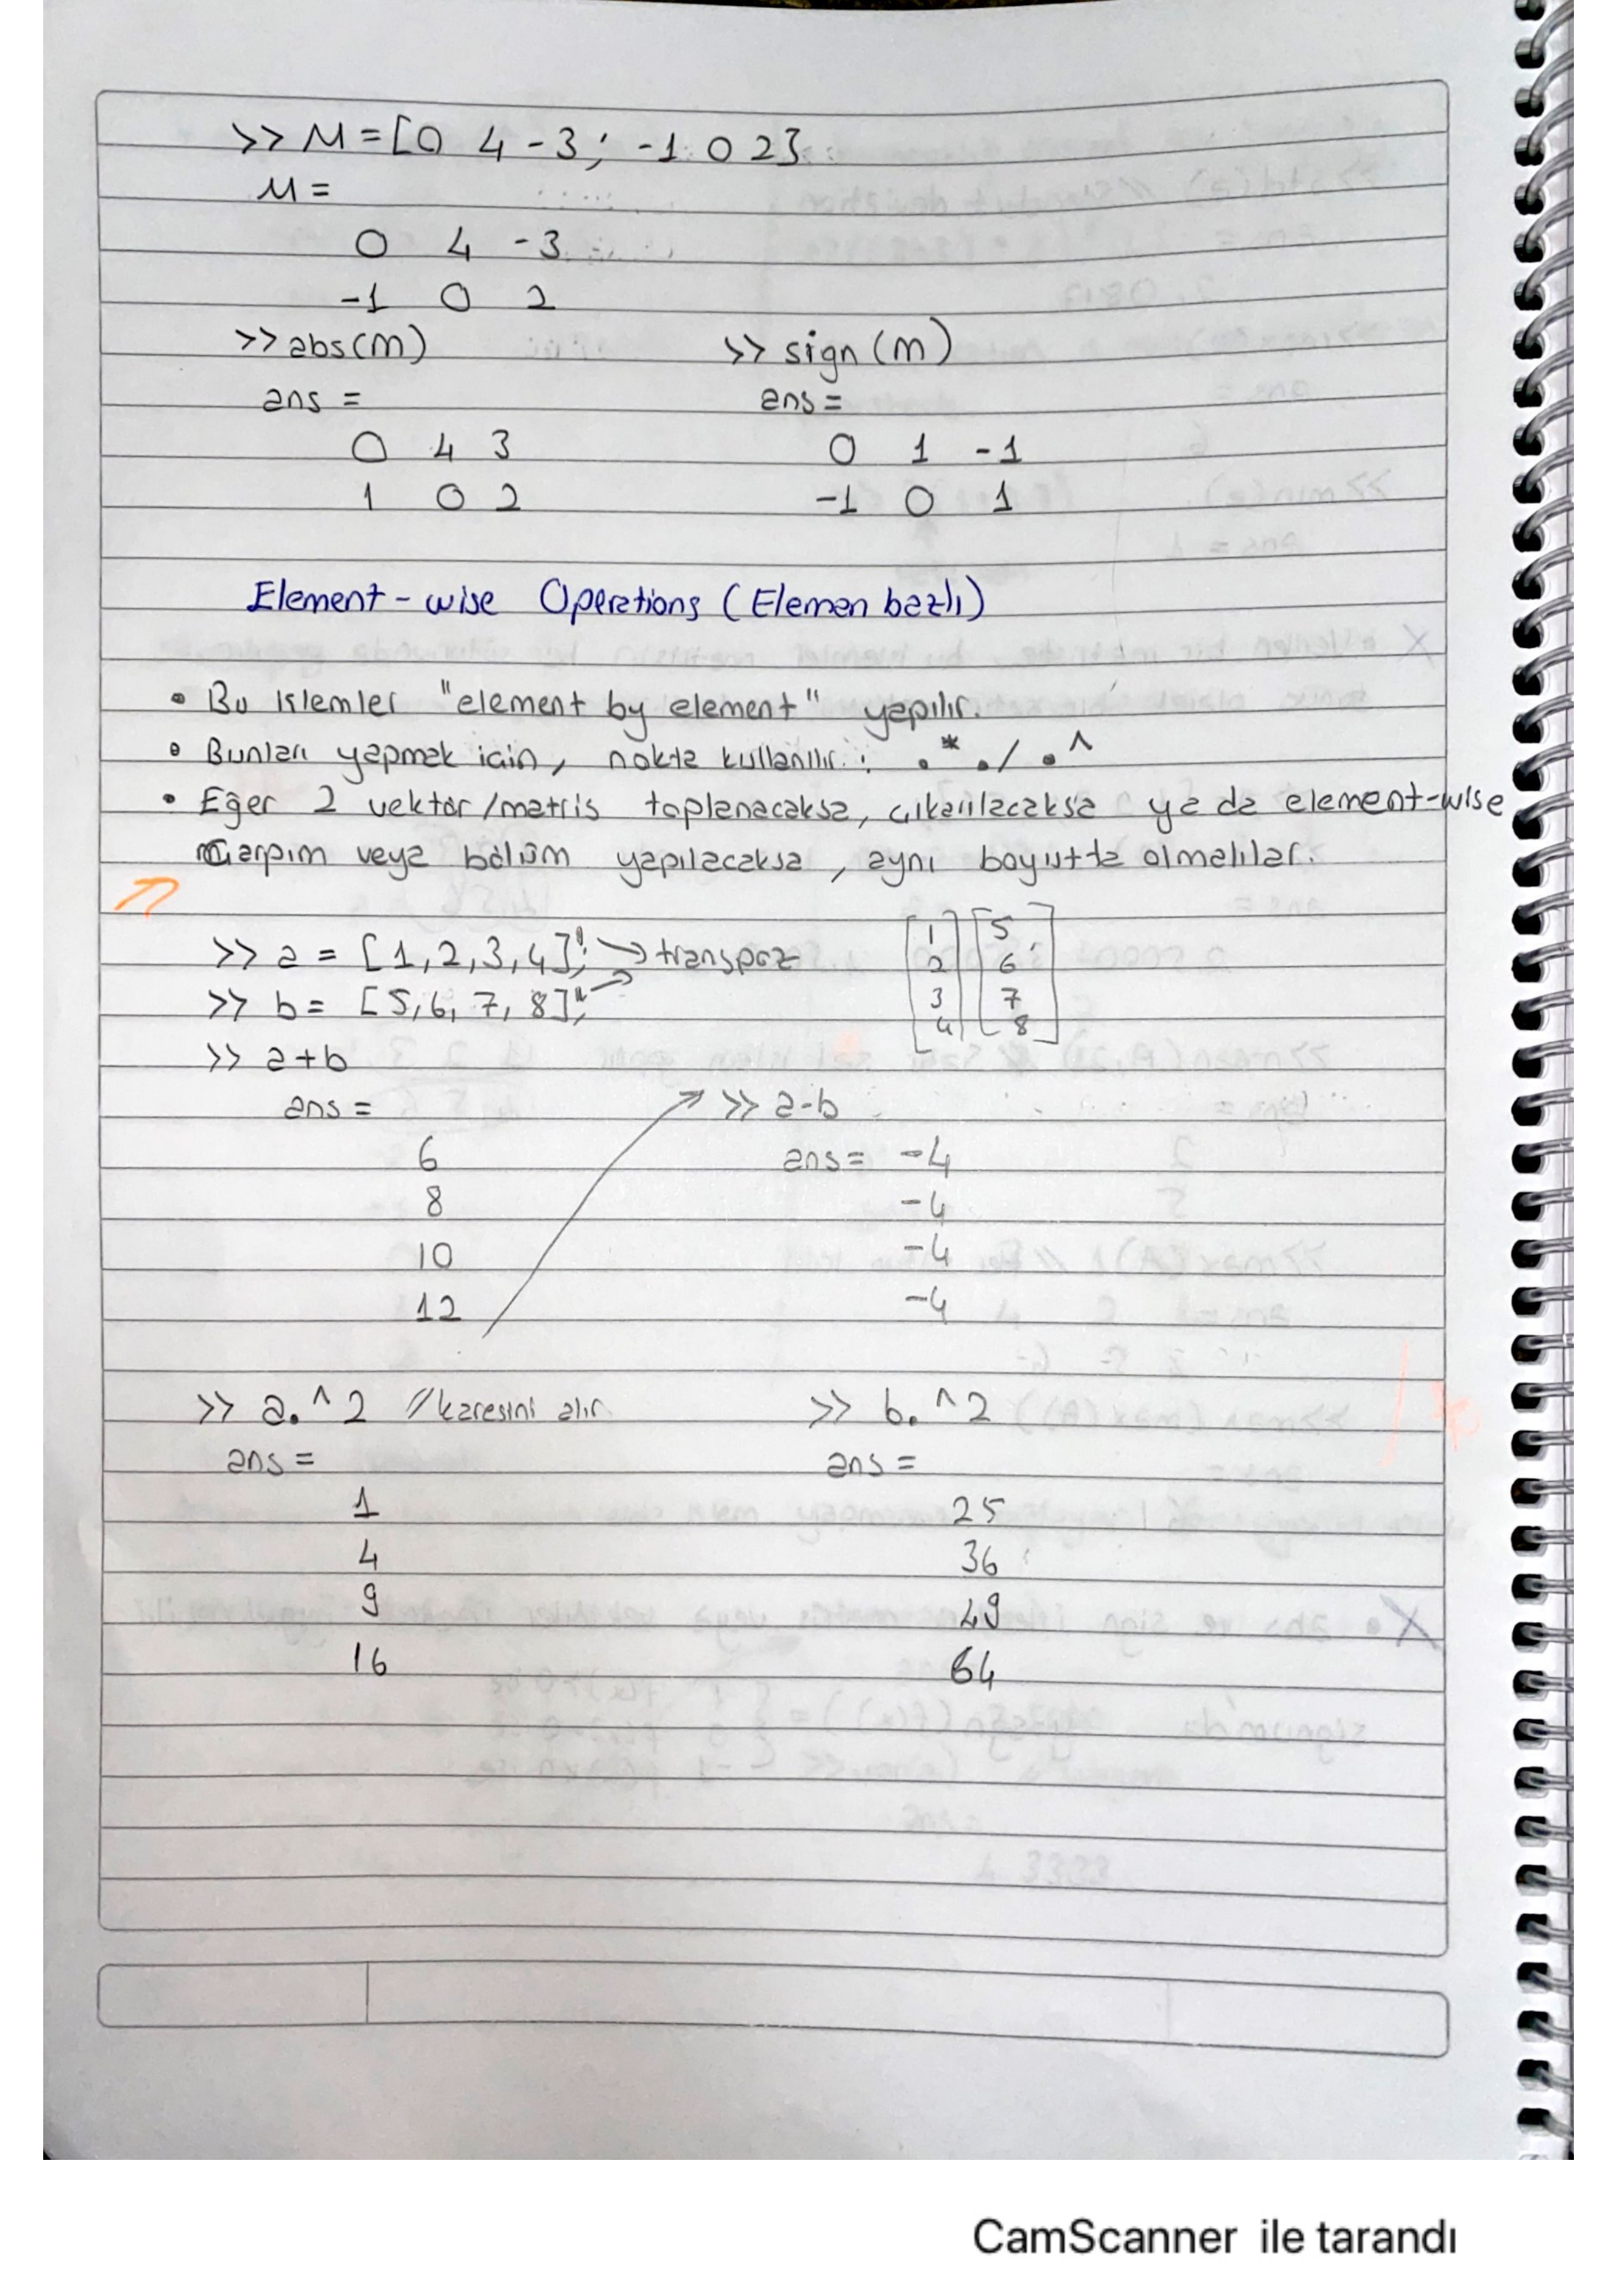 >> M = [0 4 -3; -1 0 2]
M =
0 4 -3
-1 0 2
>> abs(m) >> sign(m)
ans = ans =
0 4 3 0 1 -1
1 0 2 -1 0 1
Element-wise Operations (Eleman bazlı)
• Bu işlemler "element by element" yapılır.
• Bunları yapmak için, nokta kullanılır: .* ./ .^
• Eğer 2 vektör/matris toplanacaksa, çıkarılacaksa ya da element-wise
çarpım veya bölüm yapılacaksa, aynı boyutta olmalılar.
>> a = [1,2,3,4]'; → transpoz [1 2 3 4] [5 6 7 8]
>> b = [5,6,7,8]';
>> a+b
ans = >> a-b
6 ans = -4
8 -4
10 -4
12 -4
>> a.^2 //karesini alır. >> b.^2
ans = ans =
1 25
4 36
9 49
16 64
CamScanner ile tarandı